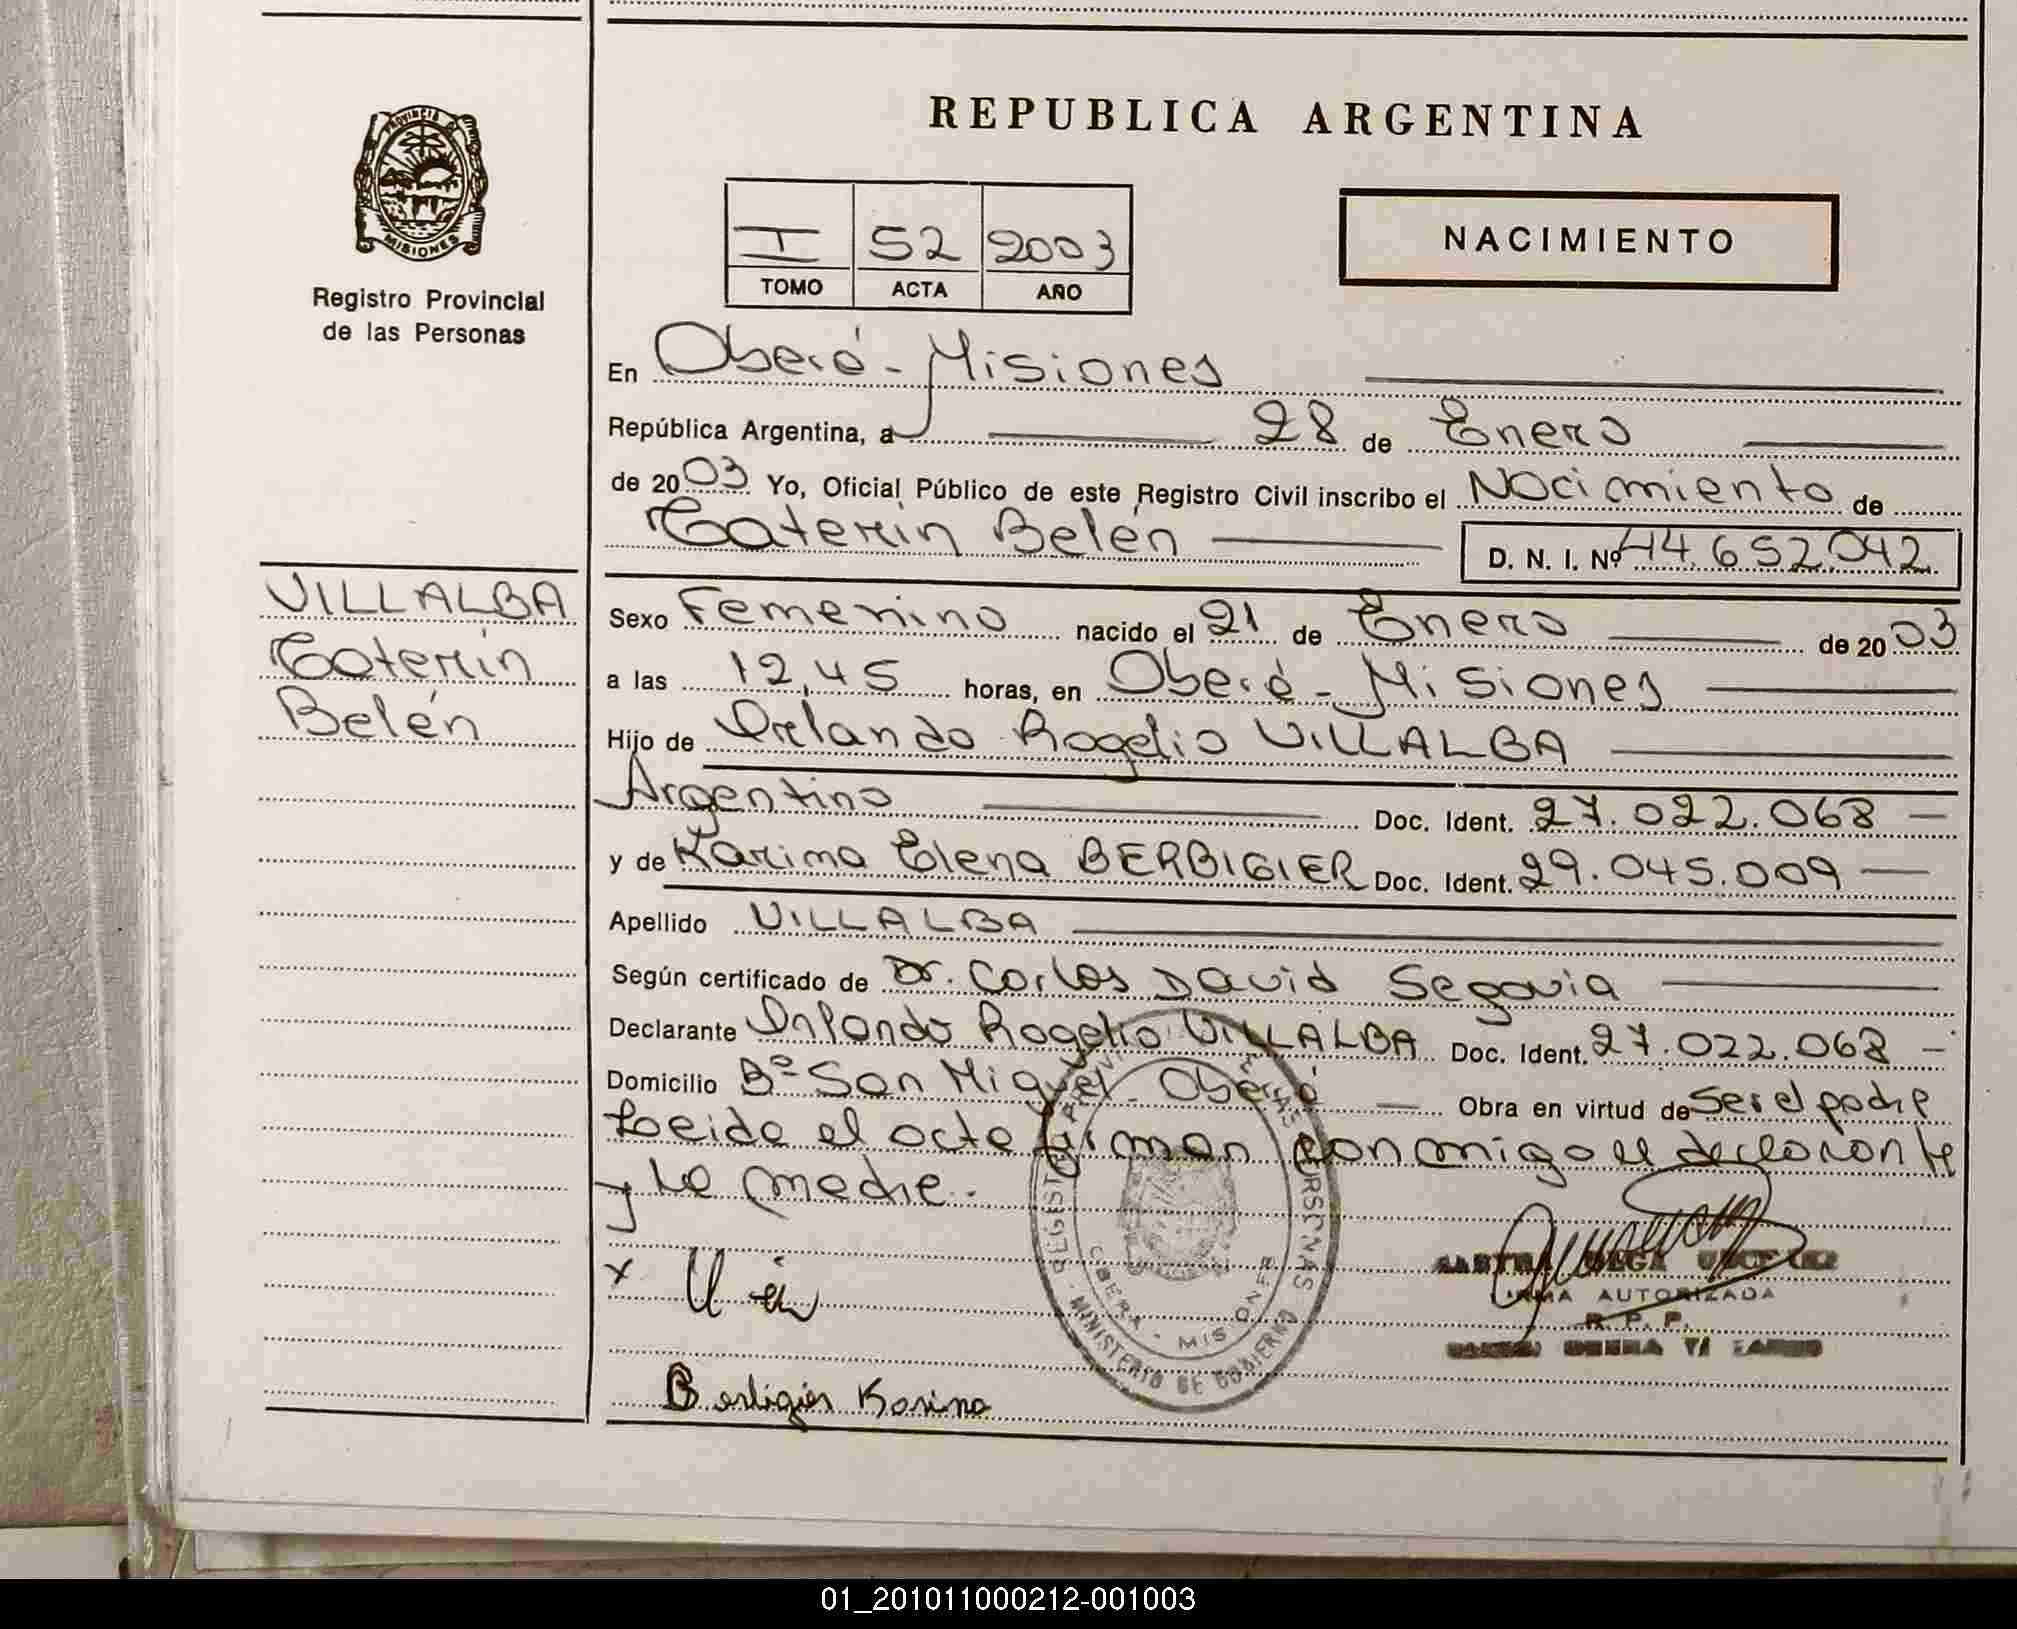 PROVINCIA DE
MISIONES
Registro Provincial
de las Personas
VILLALBA
Caterin
Belén
REPUBLICA ARGENTINA
I 52 2003
TOMO ACTA AÑO
NACIMIENTO
En Oberá - Misiones
República Argentina, a 28 de Enero
de 2003 Yo, Oficial Público de este Registro Civil inscribo el Nacimiento de
Caterin Belén D. N. I. Nº 44.652.042
Sexo Femenino nacido el 21 de Enero de 2003
a las 12,45 horas, en Oberá - Misiones
Hijo de Orlando Rogelio VILLALBA
Argentino Doc. Ident. 27.022.068
y de Karina Elena BERBIGIER Doc. Ident. 29.045.009
Apellido VILLALBA
Según certificado de Dr. Carlos David Segovia
Declarante Orlando Rogelio VILLALBA Doc. Ident. 27.022.068
Domicilio Bº San Miguel - Oberá Obra en virtud de ser el padre
Leida el acta firman conmigo el declarante
y la madre.
x
Berbigier Karina
OBERA - MISIONES
MINISTERIO DE GOBIERNO
FIRMA AUTORIZADA
R. P. P.
01_201011000212-001003